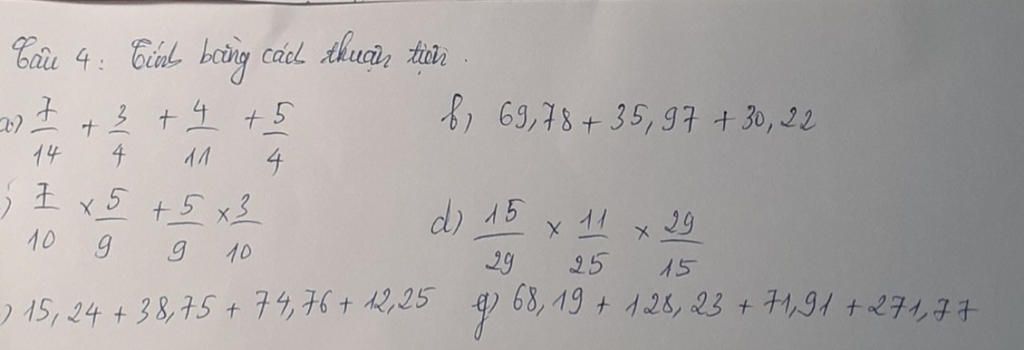 Câu 4: Tính bằng cách thuận tiện.
a) 7/14 + 3/4 + 4/11 + 5/4 b, 69,78 + 35,97 + 30,22
) 7/10 × 5/9 + 5/9 × 3/10 d) 15/29 × 11/25 × 29/15
) 15,24 + 38,75 + 74,76 + 12,25 g) 68,19 + 128,23 + 71,91 + 271,77